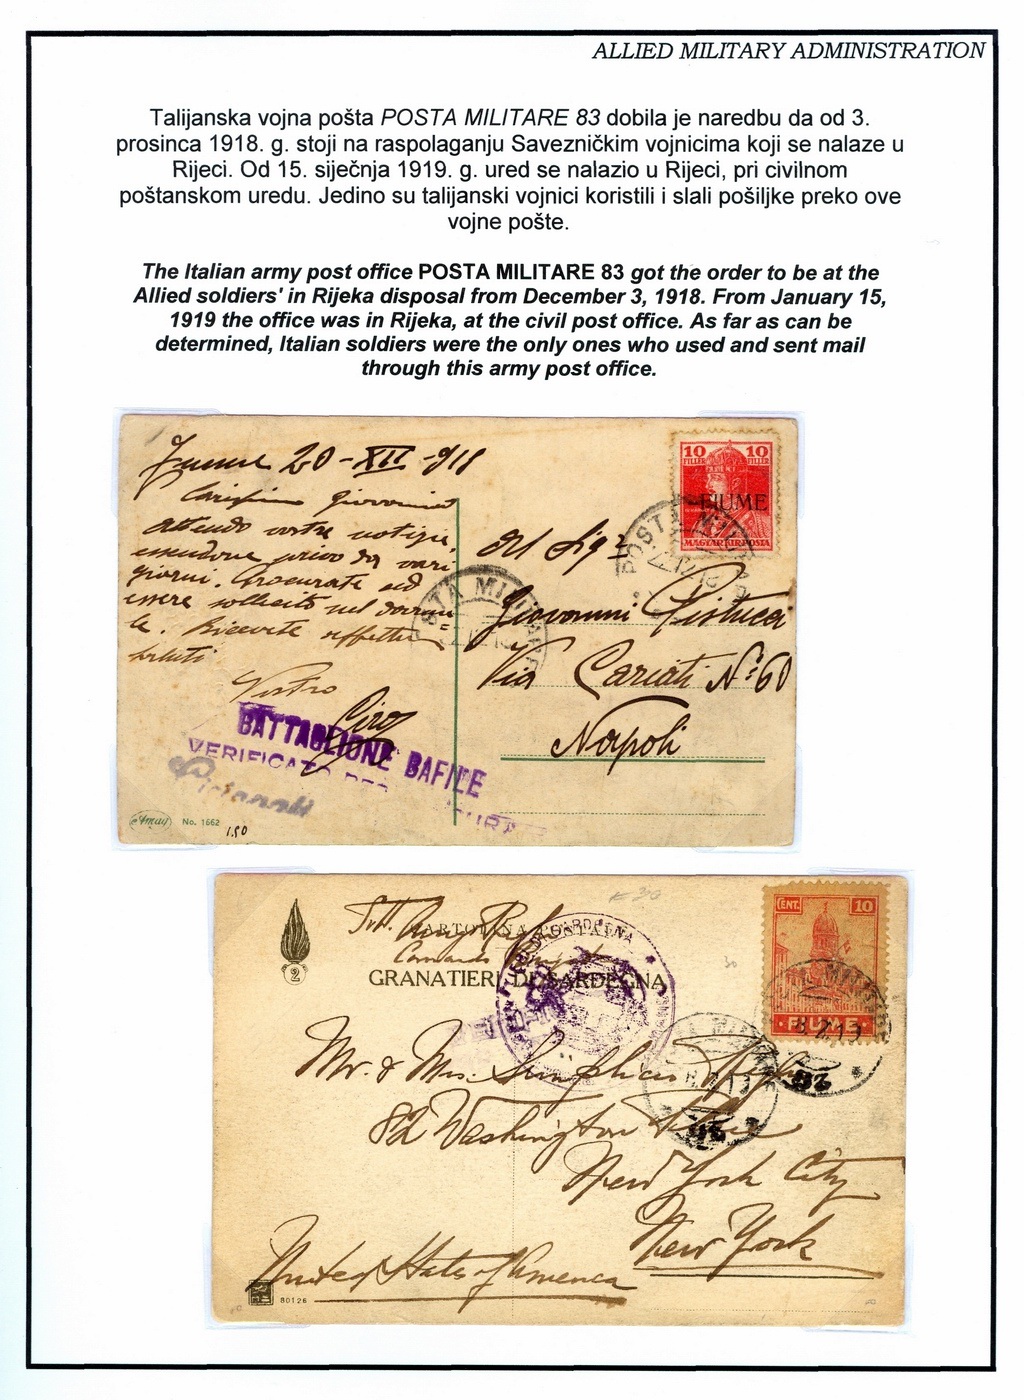 ALLIED MILITARY ADMINISTRATION
Talijanska vojna pošta POSTA MILITARE 83 dobila je naredbu da od 3.
prosinca 1918. g. stoji na raspolaganju Savezničkim vojnicima koji se nalaze u
Rijeci. Od 15. siječnja 1919. g. ured se nalazio u Rijeci, pri civilnom
poštanskom uredu. Jedino su talijanski vojnici koristili i slali pošiljke preko ove
vojne pošte.
The Italian army post office POSTA MILITARE 83 got the order to be at the
Allied soldiers' in Rijeka disposal from December 3, 1918. From January 15,
1919 the office was in Rijeka, at the civil post office. As far as can be
determined, Italian soldiers were the only ones who used and sent mail
through this army post office.
Fiume 20-XII-918
Carissimo Giovanni
Attendo vostre notizie,
essendone privo da vari
giorni. Procurate ad
essere sollecito nel darme
le. Ricevete affettuosi
saluti
Vostro
Ciro
10 10
FILLER FILLER
FIUME
MAGYAR KIR POSTA
POSTA MILITARE
POSTA MILITARE
Al Sig.
Giovanni Pistucci
Via Cariati No 60
Napoli
BATTAGLIONE BAFILE
VERIFICATO PER
No. 1662
1.50
2
CARTOLINA
GRANATIERI DI SARDEGNA
CENT. 10
FIUME
8.2.19
83
83
Mr. & Mrs.
82 Washington
New York City
New York
United States of America
80126